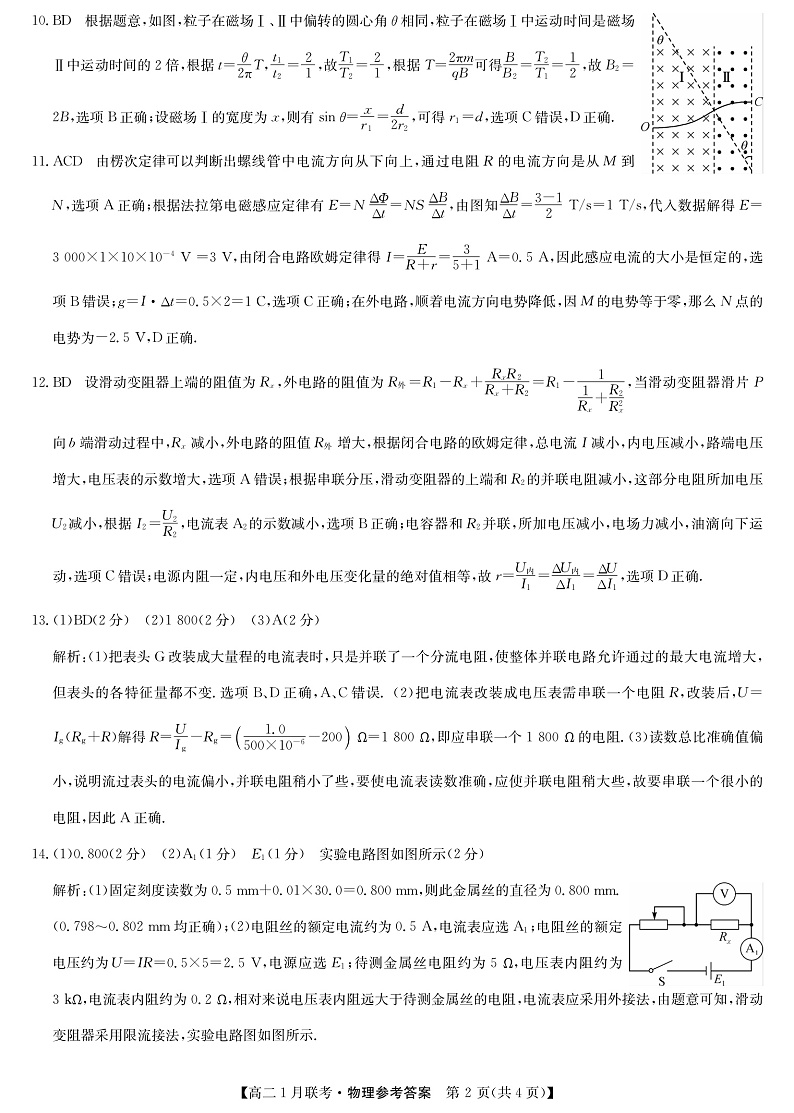 10. BD 根据题意,如图,粒子在磁场Ⅰ、Ⅱ中偏转的圆心角θ相同,粒子在磁场Ⅰ中运动时间是磁场
Ⅱ中运动时间的2倍,根据 t=θ/2π T, t₁/t₂=2/1,故T₁/T₂=2/1,根据 T=2πm/qB可得B/B₂=T₂/T₁=1/2,故 B₂=
2B,选项B正确;设磁场Ⅰ的宽度为x,则有 sin θ=x/r₁=d/2r₂,可得 r₁=d,选项C错误,D正确.
θ
Ⅰ Ⅱ
C
O
θ
11. ACD 由楞次定律可以判断出螺线管中电流方向从下向上,通过电阻R的电流方向是从M到
N,选项A正确;根据法拉第电磁感应定律有 E=N ΔΦ/Δt=NS ΔB/Δt,由图知ΔB/Δt=3-1/2 T/s=1 T/s,代入数据解得 E=
3 000×1×10×10⁻⁴ V =3 V,由闭合电路欧姆定律得 I=E/R+r=3/5+1 A=0.5 A,因此感应电流的大小是恒定的,选
项B错误;g=I·Δt=0.5×2=1 C,选项C正确;在外电路,顺着电流方向电势降低,因M的电势等于零,那么N点的
电势为-2.5 V,D正确.
12. BD 设滑动变阻器上端的阻值为Rₓ,外电路的阻值为 R外=R₁-Rₓ+RₓR₂/Rₓ+R₂=R₁-1/(1/Rₓ+R₂/Rₓ²),当滑动变阻器滑片P
向b端滑动过程中,Rₓ减小,外电路的阻值R外增大,根据闭合电路的欧姆定律,总电流I减小,内电压减小,路端电压
增大,电压表的示数增大,选项A错误;根据串联分压,滑动变阻器的上端和R₂的并联电阻减小,这部分电阻所加电压
U₂减小,根据 I₂=U₂/R₂,电流表A₂的示数减小,选项B正确;电容器和R₂并联,所加电压减小,电场力减小,油滴向下运
动,选项C错误;电源内阻一定,内电压和外电压变化量的绝对值相等,故 r=U内/I₁=ΔU内/ΔI₁=ΔU/ΔI₁,选项D正确.
13. (1)BD(2分) (2)1 800(2分) (3)A(2分)
解析:(1)把表头G改装成大量程的电流表时,只是并联了一个分流电阻,使整体并联电路允许通过的最大电流增大,
但表头的各特征量都不变. 选项B、D正确,A、C错误. (2)把电流表改装成电压表需串联一个电阻R,改装后,U=
Ig(Rg+R)解得 R=U/Ig-Rg=(1.0/500×10⁻⁶-200) Ω=1 800 Ω,即应串联一个1 800 Ω的电阻. (3)读数总比准确值偏
小,说明流过表头的电流偏小,并联电阻稍小了些,要使电流表读数准确,应使并联电阻稍大些,故要串联一个很小的
电阻,因此A正确.
14. (1)0.800(2分) (2)A₁(1分) E₁(1分) 实验电路图如图所示(2分)
解析:(1)固定刻度读数为 0.5 mm+0.01×30.0=0.800 mm,则此金属丝的直径为 0.800 mm.
(0.798～0.802 mm均正确);(2)电阻丝的额定电流约为0.5 A,电流表应选A₁;电阻丝的额定
电压约为U=IR=0.5×5=2.5 V,电源应选E₁;待测金属丝电阻约为5 Ω,电压表内阻约为
3 kΩ,电流表内阻约为0.2 Ω,相对来说电压表内阻远大于待测金属丝的电阻,电流表应采用外接法,由题意可知,滑动
变阻器采用限流接法,实验电路图如图所示.
V
Rₓ
A₁
S
E₁
【高二1月联考·物理参考答案 第2页(共4页)】